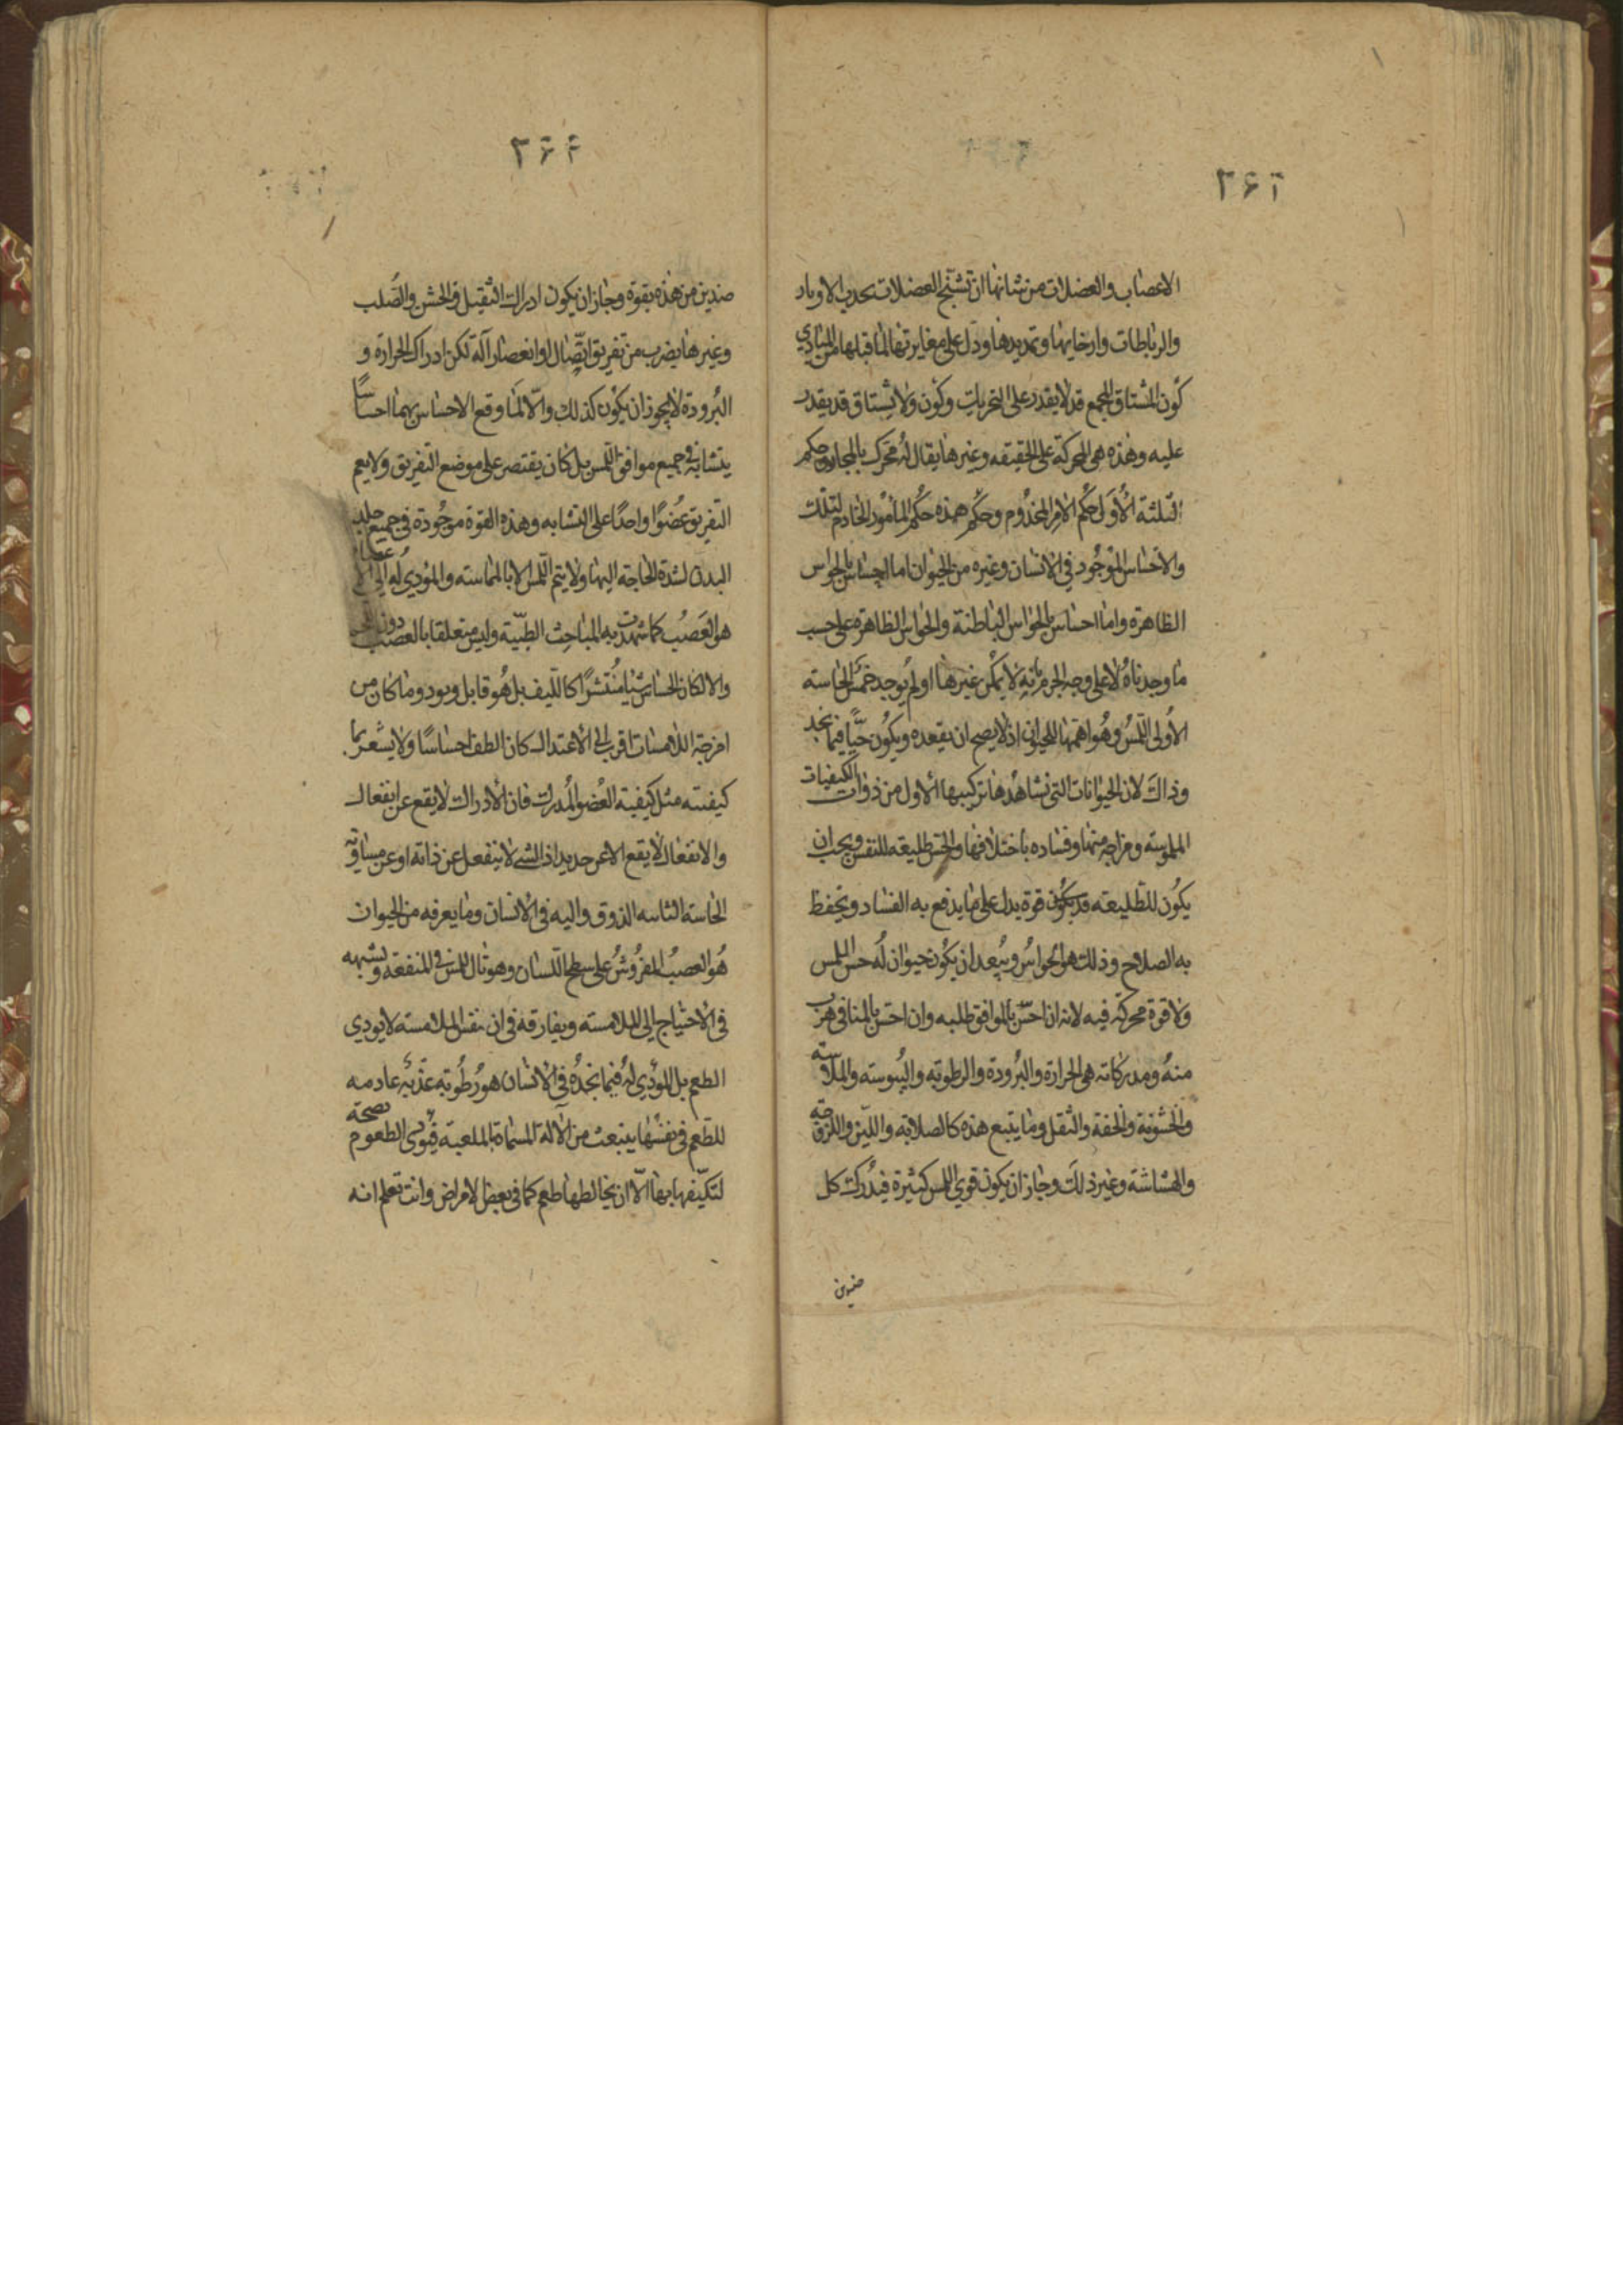 ٣٤٣
الاعضاب والعضلات من شانها ان تشنج العضلات بجذب الاوتار
والرباطات وارخايها وتمديدها ودل على مغايرتها لما قبلها من المبادي
كون المشتاق المجمع قد لا يقدر على التحريك وكون ولا يشتاق قد يقدر
عليه وهذه هى المحركة على الحقيقه وغيرها يقال له محرك بالمجاز وحكم
الثلثة الأول حكم الآمر المخدوم وحكم هذه حكم المأمور الخادم لتلك
والاحساس الموجود في الانسان وغيره من الحيوان اما احساس بالحواس
الظاهرة واما احساس بالحواس الباطنة والحواس الظاهره على حسب
ما وجدناه لا على وجه الجزم بانه لا يمكن غيرها او لم يوجد خمس الحاسته
الأولى اللمس وهو اهمها للحيوان اذ لا يصح ان يفقده ويكون حيا فيما نجد
وذاك لان الحيوانات التى نشاهدها تركيبها الاول من ذوات الكيفيات
الملموسته ومزاجه منها وفساده باختلافها والحس طليعه للنفس ويجب ان
يكون للطليعته قد يكون قوة يدل على ما يدفع به الفساد ويحفظ
به الصلاح وذلك هو الحواس ويبعد ان يكون حيوان له حس اللمس
ولا قوة محركة فيه لانه ان احس بالموافق طلبه وان احس بالمنافى هرب
منه ومدركاته هى الحرارة والبرودة والرطوبه واليبوسته والملاسته
والخشونة والخفة والثقل وما يتبع هذه كالصلابه واللين واللزوجة
والهشاشة وغير ذلك وجاز ان يكون قوي اللمس كثيرة فيدرك كل
ضدين
٣٤٤
ضدين من هذه بقوة وجاز ان يكون ادراك الثقيل والخشن والصلب
وغيرها بضرب من تفريق اتصال او انعصار آلة لكن ادراك الحرارة و
البرودة لا يجوز ان يكون كذلك والا لما وقع الاحساس بهما احساسًا
يتشابه فى جميع مواقع اللمس بل كان يقتصر على موضع التفريق ولا يعم
التفريق عضوًا واحدًا على التشابه وهذه القوة موجودة فى جميع جلد
البدن لشدة الحاجته اليها ولا يتم اللمس الا بالمماسته والمؤدي له الى الأعضاء
هو العصب كما شهدت به المباحث الطبية وليس متعلقا بالعصب دون اللحم
والا لكان الحساس شيئا منتشرًا كالليف بل هو قابل ومود وما كان من
امزجة اللامسات اقرب الى الاعتدال كان الطف احساسًا ولا يشعر بما
كيفيته مثل كيفية العضو المدرك فان الادراك لا يقع عن انفعال
والانفعال لا يقع الا عن جديد اذ الشي لا ينفعل عن ذاته او عن مساويه
الحاسة الثانيه الذوق واليه فى الانسان وما يعرفه من الحيوان
هو العصب المفروش على سطح اللسان وهو تال للمس فى المنفعة ويشبهه
فى الاحتياج الى الملامسته ويفارقه فى ان نفس الملامسته لا يودى
الطعم بل المؤدي له فيما نجده فى الانسان هو رطوبه عذبه عادمه
للطعم فى نفسها ينبعث من الآلة المسماة بالملعبة فيؤدى الطعوم بصحة
لتكيفها بها الا ان يخالطها طعم كما فى بعض الامراض وانت تعلم انه